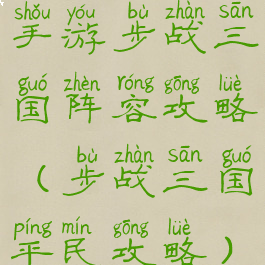 shǒu yóu bù zhàn sān
手游步战三
guó zhèn róng gōng lüè
国阵容攻略
bù zhàn sān guó
（步战三国
píng mín gōng lüè
平民攻略）